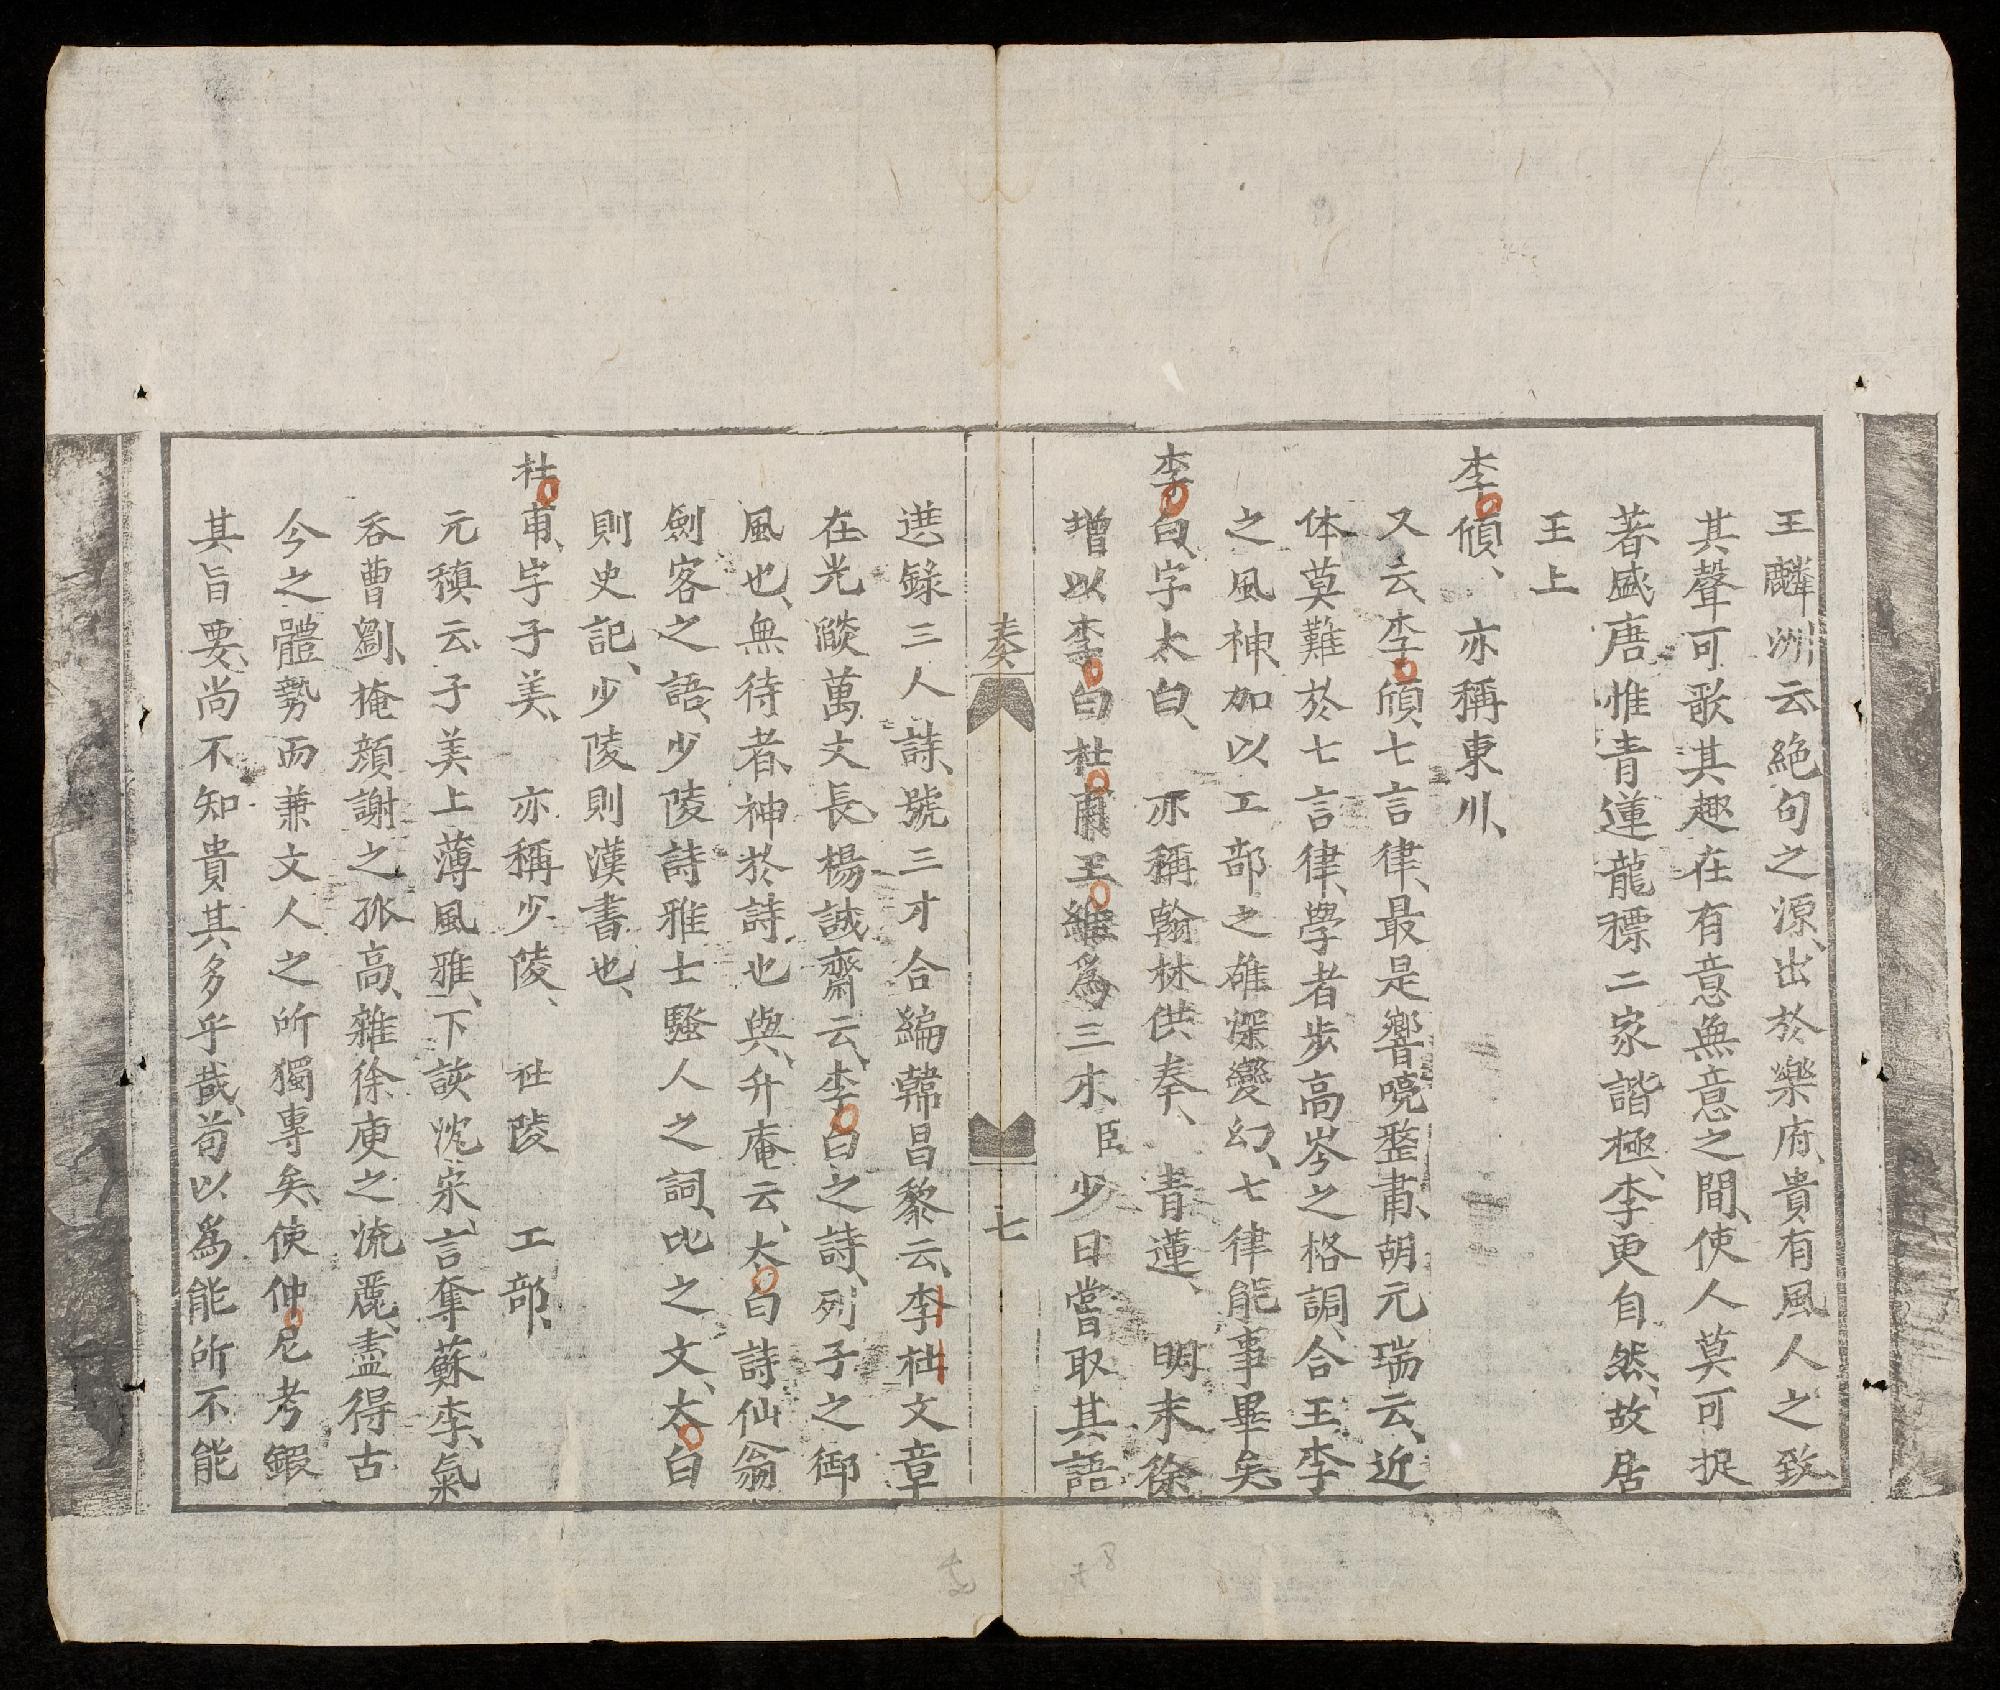 王麟洲云絶句之源、出於樂府、貴有風人之致
其聲可歌其趣在有意無意之間、使人莫可捉
著盛唐惟青蓮龍標二家諧極、李更自然、故居
王上
李頎、亦稱東川、
又云、李頎七言律、最是響喨整肅、胡元瑞云、近
体莫難於七言律、學者步高岑之格調、合王李
之風神、加以工部之雄深變幻、七律能事畢矣
李白、字太白、亦稱翰林供奉、青蓮、明末徐
增以李白杜甫王維爲三才、臣少日嘗取其語
奏
七
選錄三人詩、號三才合編韓昌黎云、李杜文章
在光燄萬丈長楊誠齋云、李白之詩、列子之御
風也、無待者、神於詩也與、升庵云、太白詩仙翁
劍客之語、少陵詩雅士騷人之詞、比之文、太白
則史記、少陵則漢書也、
杜甫、字子美、亦稱少陵、杜陵 工部、
元稹云、子美上薄風雅、下該沈宋、言奪蘇李、氣
吞曹劉、掩顔謝之孤高、雜徐庾之流麗、盡得古
今之體勢而兼文人之所獨專矣、使仲尼考鍜
其旨要、尚不知貴其多乎哉、苟以爲能所不能